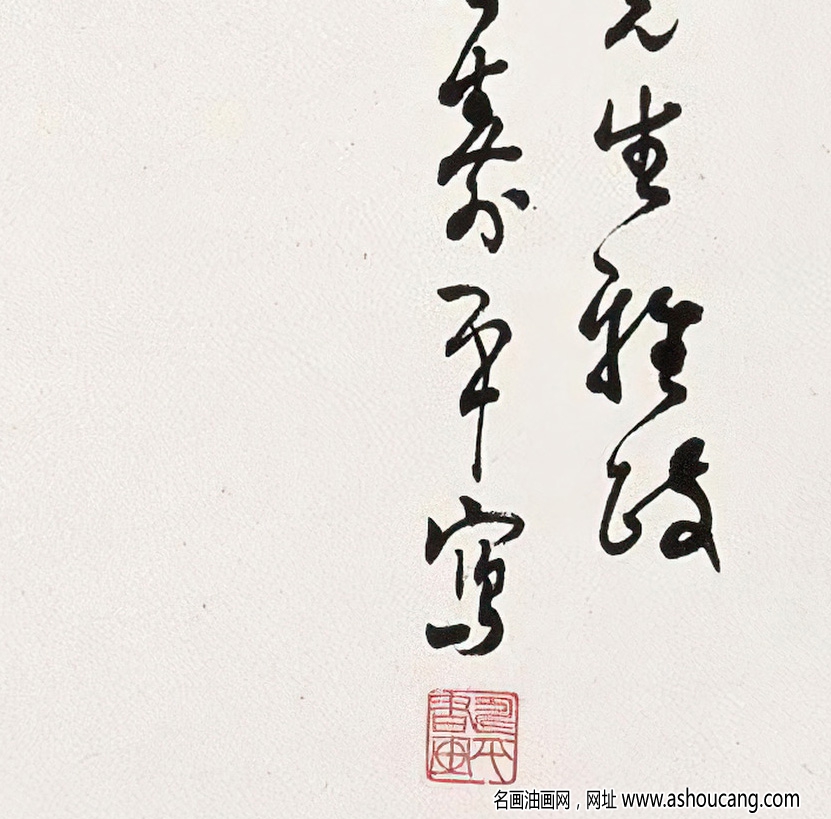 先生雅政
平寫
書画
名画油画网，网址 www.ashoucang.com